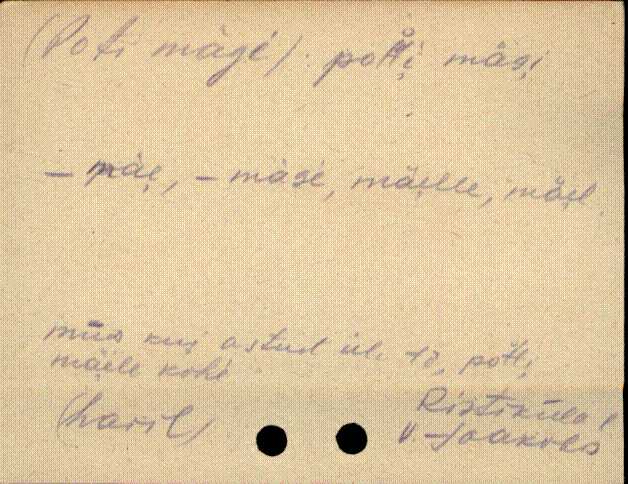 (Poti mägi): potti mägi
– mäe, – mäge, mäelle, mäel.
kui astud üle potti
mäelle kohe
(haril)
Ristiküla
V-Jaakobi